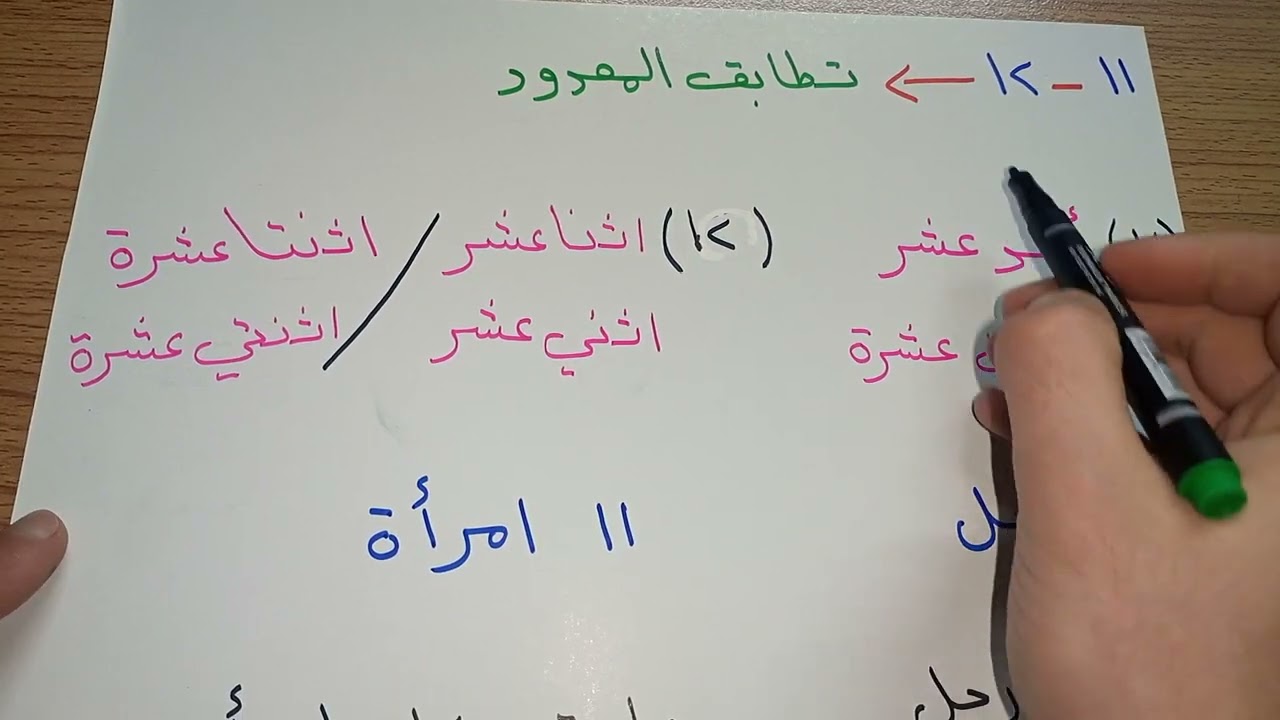 ١١ - ١٢ ← تطابق المعدود
عشر (١٢) اثنا عشر / اثنتا عشرة
عشرة اثني عشر / اثنتي عشرة
١١ امرأة